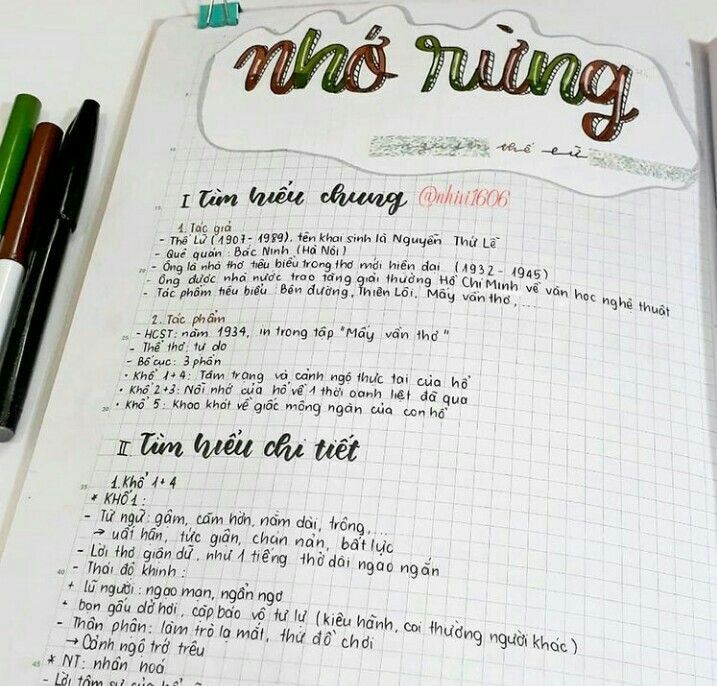 nhớ rừng
thế lữ
I Tìm hiểu chung @nhiii1606
1. Tác giả
- Thế Lữ (1907 - 1989), tên khai sinh là Nguyễn Thứ Lễ
- Quê quán: Bắc Ninh (Hà Nội)
- Ông là nhà thơ tiêu biểu trong thơ mới hiện đại (1932 - 1945)
- Ông được nhà nước trao tặng giải thưởng Hồ Chí Minh về văn học nghệ thuật
- Tác phẩm tiêu biểu: Bên đường, Thiên Lôi, Mấy vần thơ, ...
2. Tác phẩm
- HCST: năm 1934, in trong tập "Mấy vần thơ"
- Thể thơ: tự do
- Bố cục: 3 phần
• Khổ 1+4: Tâm trạng và cảnh ngộ thực tại của hổ
• Khổ 2+3: Nỗi nhớ của hổ về 1 thời oanh liệt đã qua
• Khổ 5: Khao khát về giấc mộng ngàn của con hổ
II Tìm hiểu chi tiết
1. Khổ 1+4
* KHỔ 1:
- Từ ngữ: gậm, căm hờn, nằm dài, trông,...
→ uất hận, tức giận, chán nản, bất lực
- Lời thơ giận dữ, như 1 tiếng thở dài ngao ngán
- Thái độ khinh:
+ lũ người: ngạo mạn, ngẩn ngơ
+ bọn gấu dở hơi, cặp báo vô tư lự (kiêu hãnh, coi thường người khác)
- Thân phận: làm trò lạ mắt, thứ đồ chơi
→ Cảnh ngộ trớ trêu
* NT: nhân hoá
- Lời tâm sự của hổ